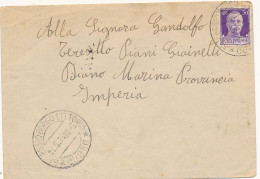 Alla Signora Gandolfo
Teresita Piani Giainelli
Diano Marina Provincia
Imperia